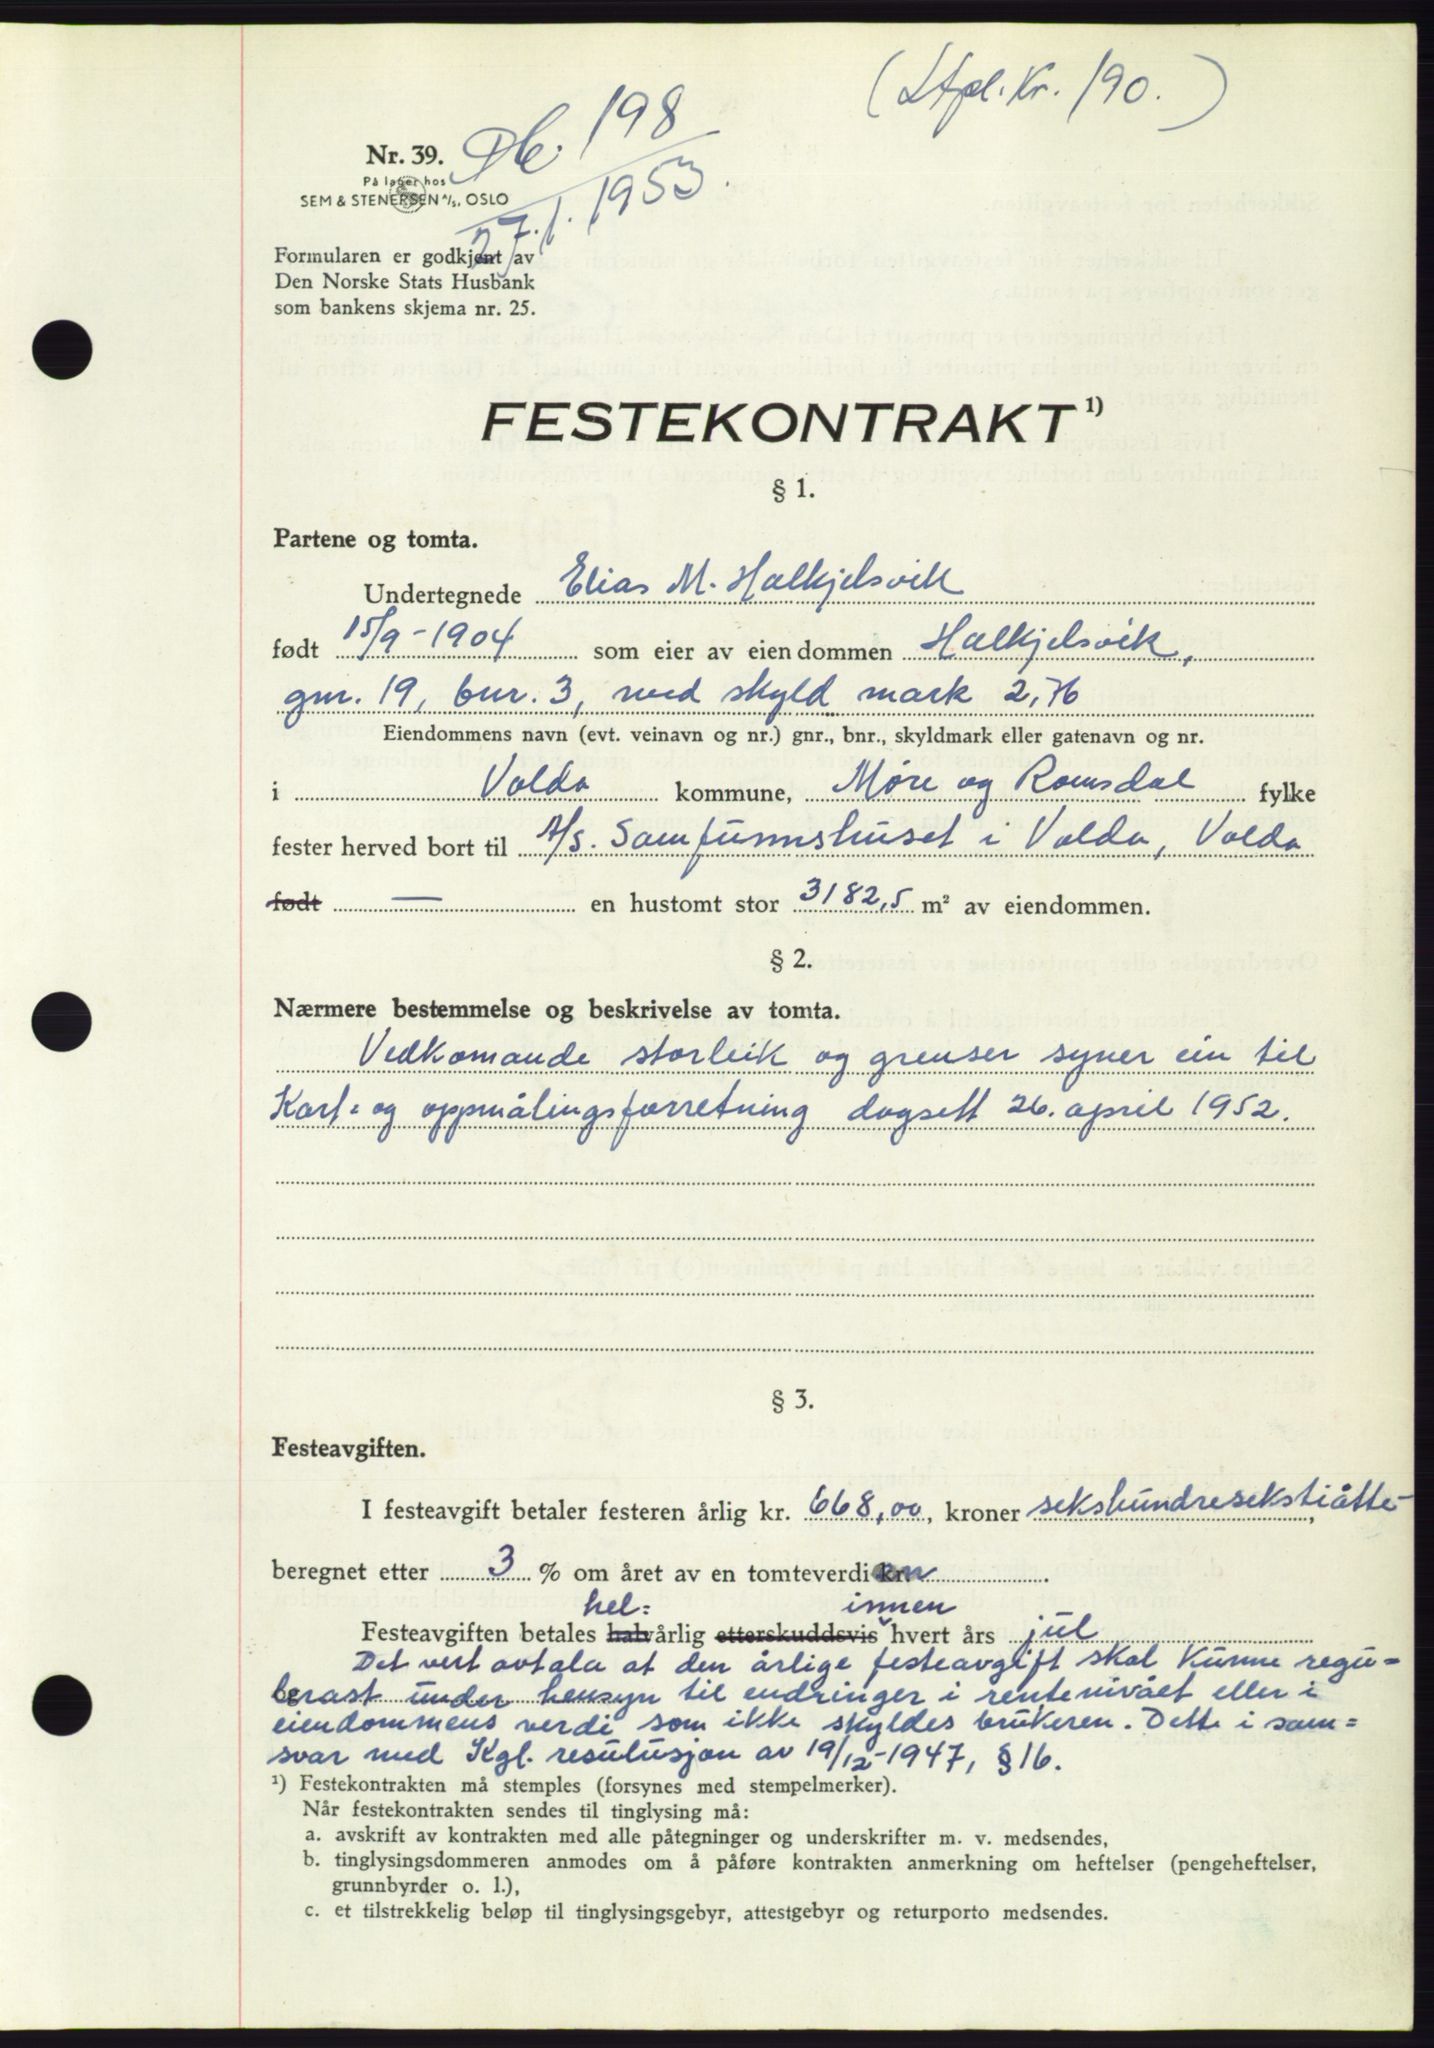 (Stpl. Kr. 190.)
Nr. 39. Db. 198
27/1. 1953.
På lager hos
SEM & STENERSEN A/S, OSLO
Formularen er godkjent av
Den Norske Stats Husbank
som bankens skjema nr. 25.
FESTEKONTRAKT 1)
§ 1.
Partene og tomta.
Undertegnede Elias M. Halkjelsvik
født 15/9-1904 som eier av eiendommen Halkjelsvik,
gnr. 19, bnr. 3, med skyld mark 2,76
Eiendommens navn (evt. veinavn og nr.) gnr., bnr., skyldmark eller gatenavn og nr.
i Volda kommune, Møre og Romsdal fylke
fester herved bort til A/S. Samfunnshuset i Volda, Volda
født — en hustomt stor 3182,5 m² av eiendommen.
§ 2.
Nærmere bestemmelse og beskrivelse av tomta.
Vedkomande storleik og grenser syner ein til
Kart- og oppmålingsforretning dagsett 26. april 1952.
§ 3.
Festeavgiften.
I festeavgift betaler festeren årlig kr. 668,00, kroner sekshundresekstiåtte-,
beregnet etter 3 % om året av en tomteverdi kr.
hel= innen
Festeavgiften betales halvårlig etterskuddsvis hvert års jul
Det vert avtala at den årlige festeavgift skal kunne regu=
lerast under hensyn til endringer i rentenivået eller i
eiendommens verdi som ikke skyldes brukeren. Dette i sam=
svar med Kgl. resulusjon av 19/12-1947, § 16.
1) Festekontrakten må stemples (forsynes med stempelmerker).
Når festekontrakten sendes til tinglysing må:
a. avskrift av kontrakten med alle påtegninger og underskrifter m. v. medsendes,
b. tinglysingsdommeren anmodes om å påføre kontrakten anmerkning om heftelser (pengeheftelser,
grunnbyrder o. l.),
c. et tilstrekkelig beløp til tinglysingsgebyr, attestgebyr og returporto medsendes.